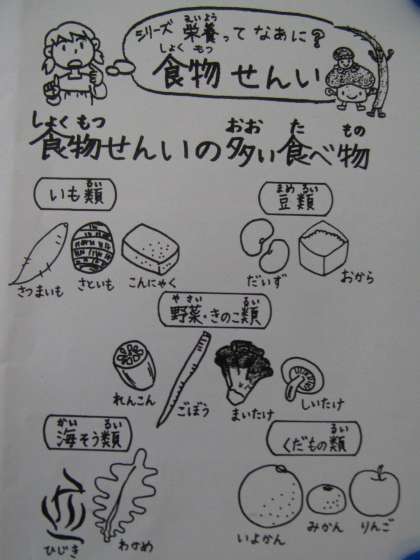 シリーズ 栄養ってなあに？
えいよう
食物せんい
しょく もつ
食物せんいの多い食べ物
しょく もつ おお た もの
いも類
るい
さつまいも さといも こんにゃく
豆類
まめ るい
だいず おから
野菜・きのこ類
や さい るい
れんこん ごぼう まいたけ しいたけ
海そう類
かい るい
ひじき わかめ
くだもの類
るい
いよかん みかん りんご